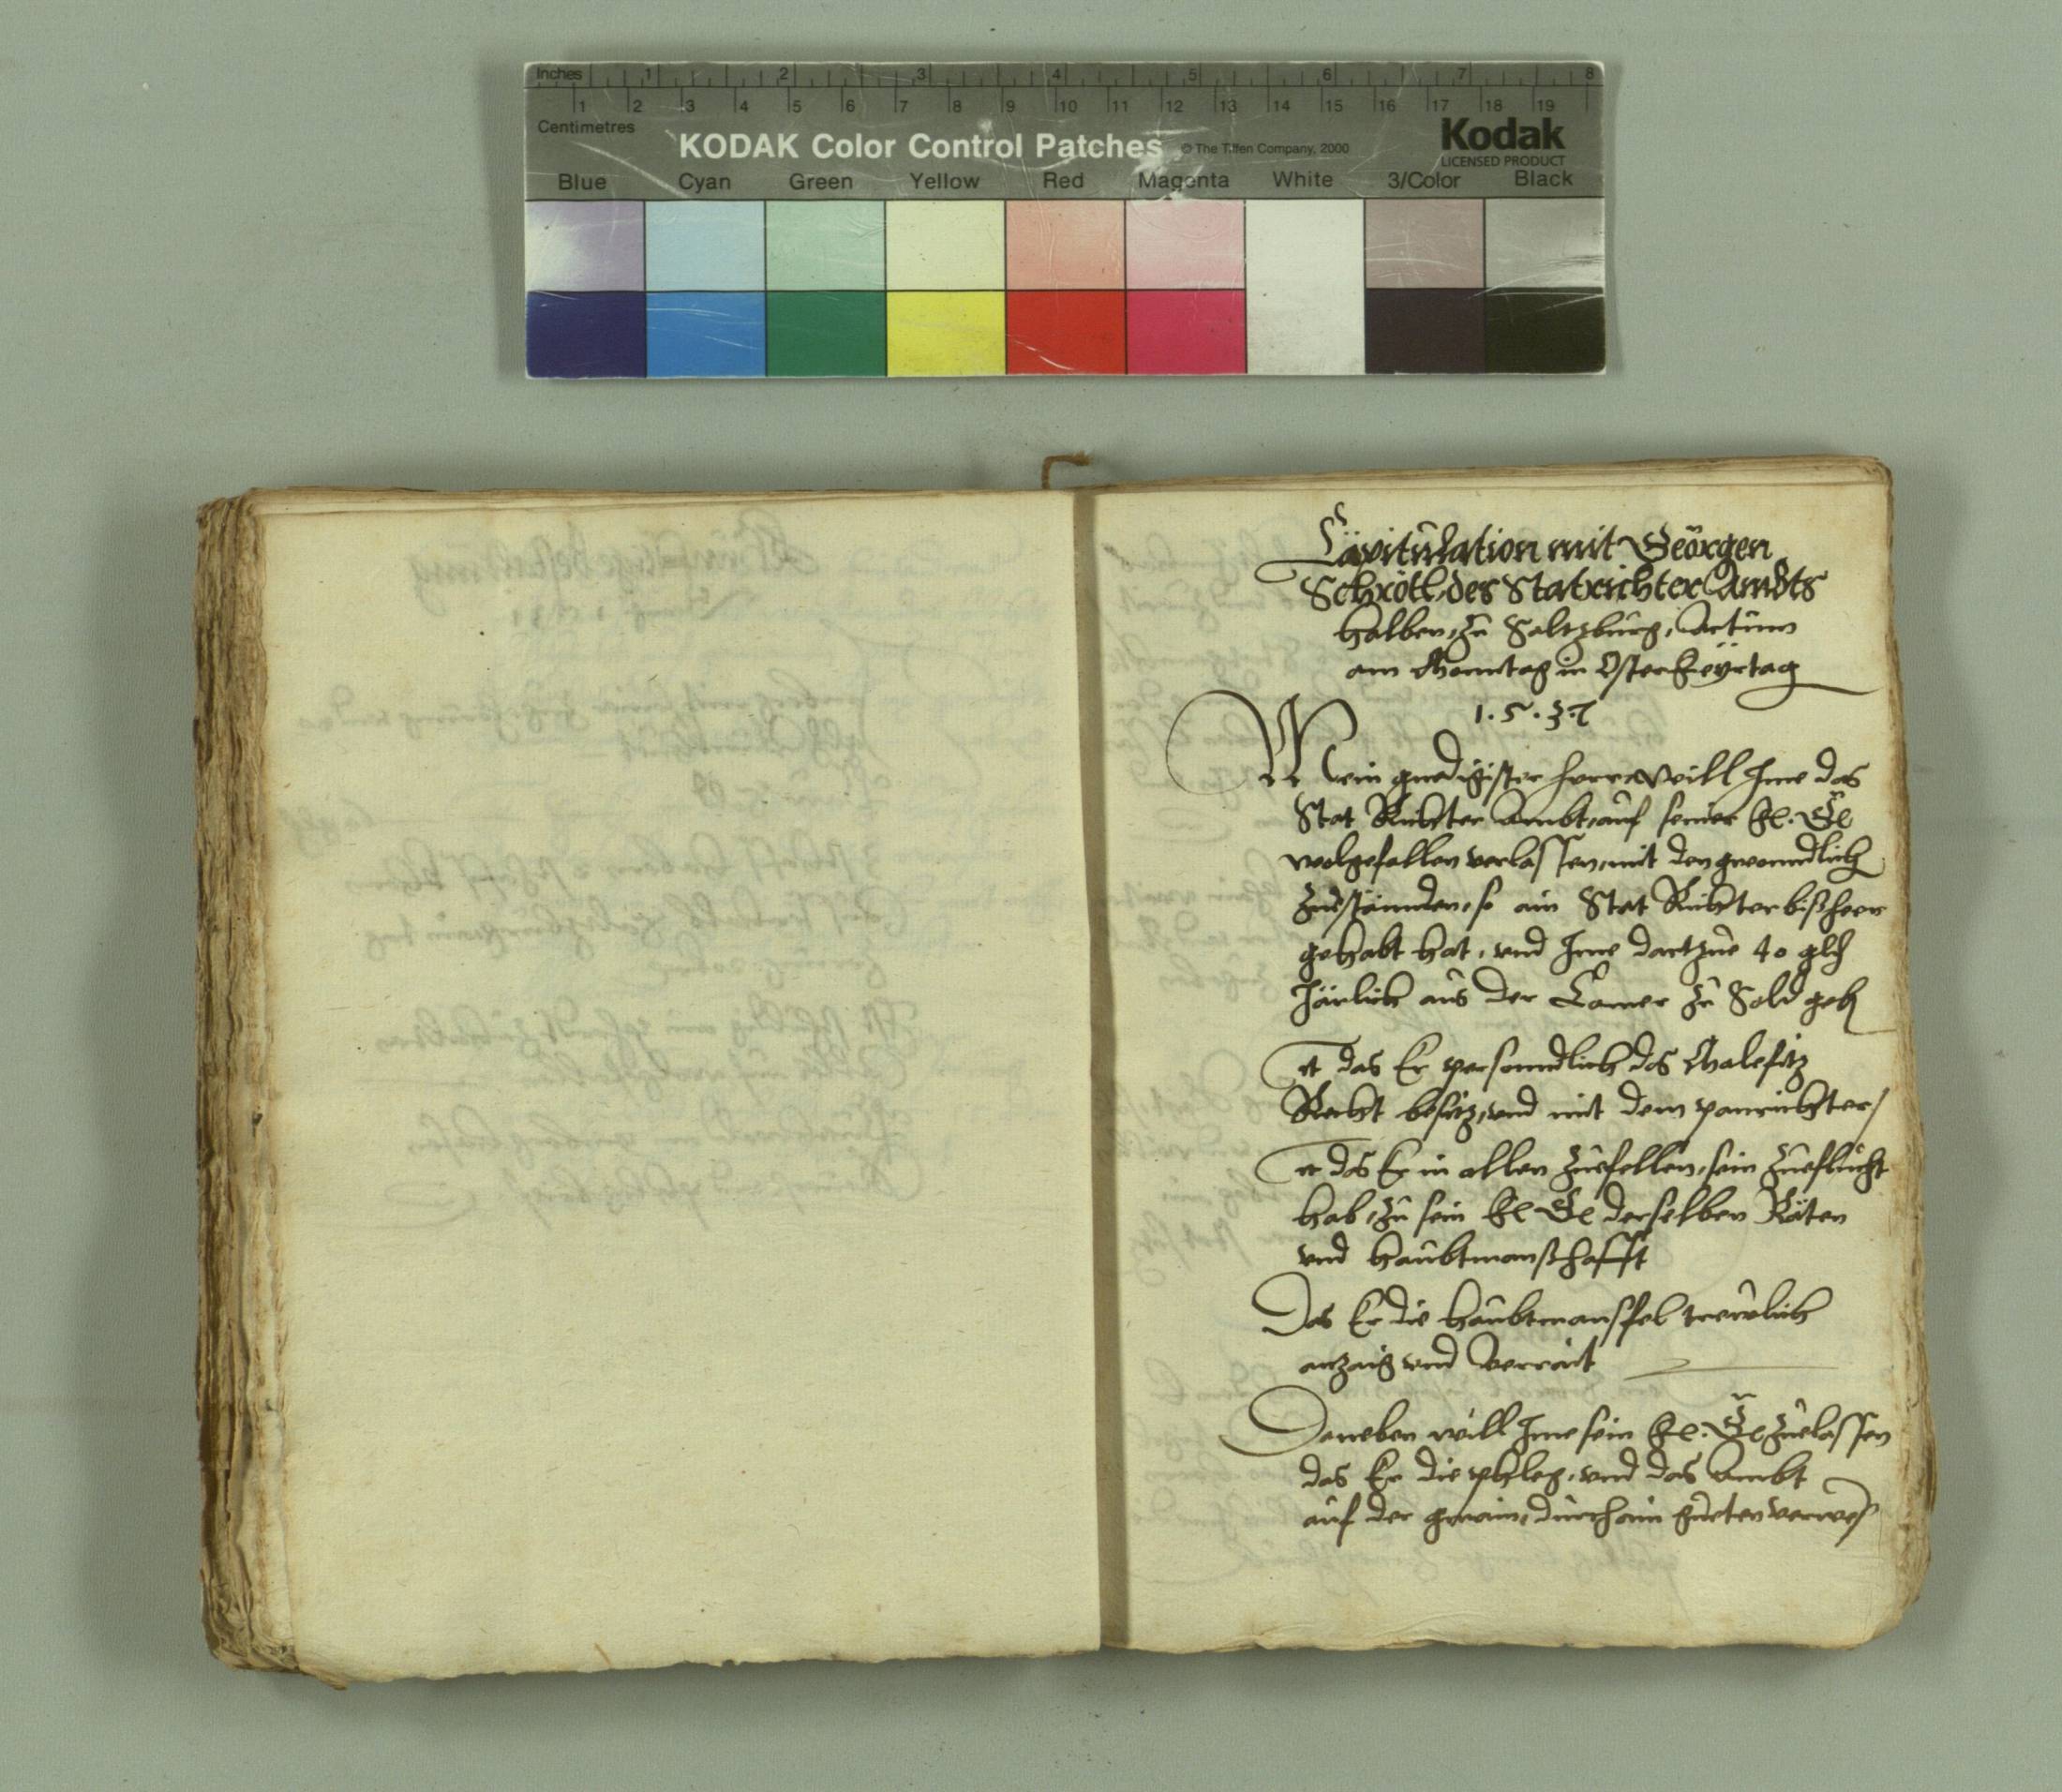 Inches 1 2 3 4 5 6 7 8
1 2 3 4 5 6 7 8 9 10 11 12 13 14 15 16 17 18 19
Centimetres
KODAK Color Control Patches © The Tiffen Company, 2000
Kodak
LICENSED PRODUCT
Blue Cyan Green Yellow Red Magenta White 3/Color Black
Capitulation mit Geörgen
Schrötl, des Statrichter Ambts
halben, zu Saltzburg, Actum
am Monntag in Osterfeÿrtag
1.5.37
Mein gnedigister herr will Ime das
Stat Richter Ambt, auf seiner fl. Gl
wolgefallen verlassen, mit den gwonndlich
Zueständen, so ain Stat Richter bißheer
gehabt hat, vnd Ime dartzue 40 glh
Järlich aus der Camer zu Sold geb
It das Er personndlich das Malefitz
Recht besitz, vnd mit dem panrichter /
It das Er in allen Zuefellen, sein Zueflucht
hab, zu sein fl Gl derselben Räten
vnd haubtmanschafft
Das Er die haubtmansfel trewlich
anzaig vnd verrait
Daneben will Ime sein fl. Gl zuelassen
das Er die phleg, vnd das Ambt
auf der gmain, durch ain gueten verwes